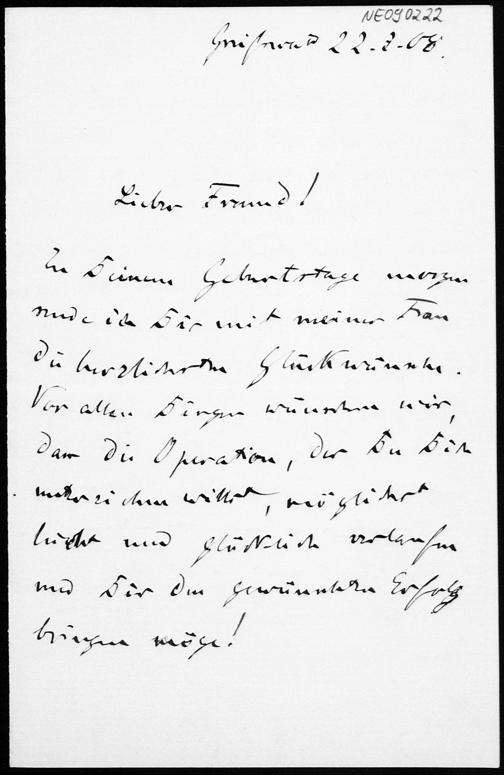 NE090222
Greifswald 22-2-08.
Lieber Freund!
Zu Deinem Geburtstage morgen
sende ich Dir mit meiner Frau
die herzlichsten Glückwünsche.
Vor allen Dingen wünschen wir,
dass die Operation, der Du Dich
unterziehen willst, möglichst
leicht und glücklich verlaufen
und Dir den gewünschten Erfolg
bringen möge!